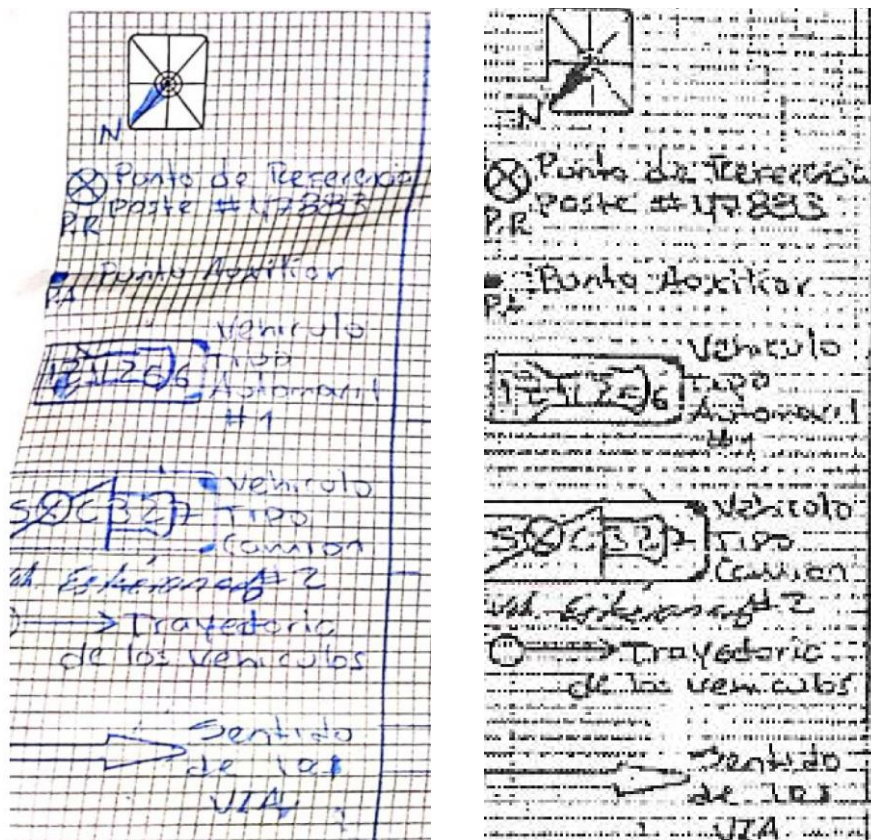 N
Punto de Referencia
Poste #47883
P.R
Punto Auxiliar
P.A
Vehiculo
TIPO
Automovil
#1
Vehiculo
TIPO
Camion
#2
Trayectoria
de los vehiculos
Sentido
de las
VIA
N
Punto de Referencia
Poste #47883
P.R
Punto Auxiliar
P.A
Vehiculo
TIPO
Automovil
#1
Vehiculo
TIPO
Camion
#2
Trayectoria
de los vehiculos
Sentido
de las
VIA